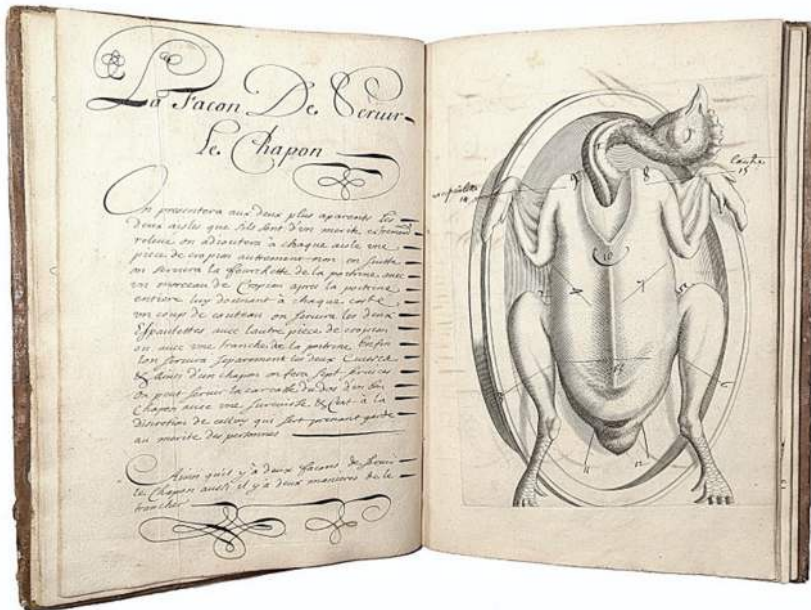 La Facon De Seruir
le Chapon
On presentera aux deux plus aparents les
deux aisles que s'ils sont d'vn merite extrememt
releue on adioutera à chaque aisle vne
piece de cropion autrement non en suitte
on seruira la fourchette de la poitrine auec
vn morceau de Cropion apres la poitrine
entiere luy donnant à chaque costé
vn coup de couteau on seruira les deux
Espaulettes auec lautre piece de cropion
ou auec vne tranche de la poitrine Enfin
lon seruira separement les deux Cuisses
& Ainsi d'un chapon on fera sept seruices
on peut seruir la carcasse du dos d'vn bon
Chapon auec vne & C'est à la
discretion de celluy qui sert prenant garde
au merite des personnes
Ainsi qu'il y'a deux facons de seruir
le Chapon aussi il y'a deux manieres de le
trancher
9
8
14
15
10
4
7
13
11
12